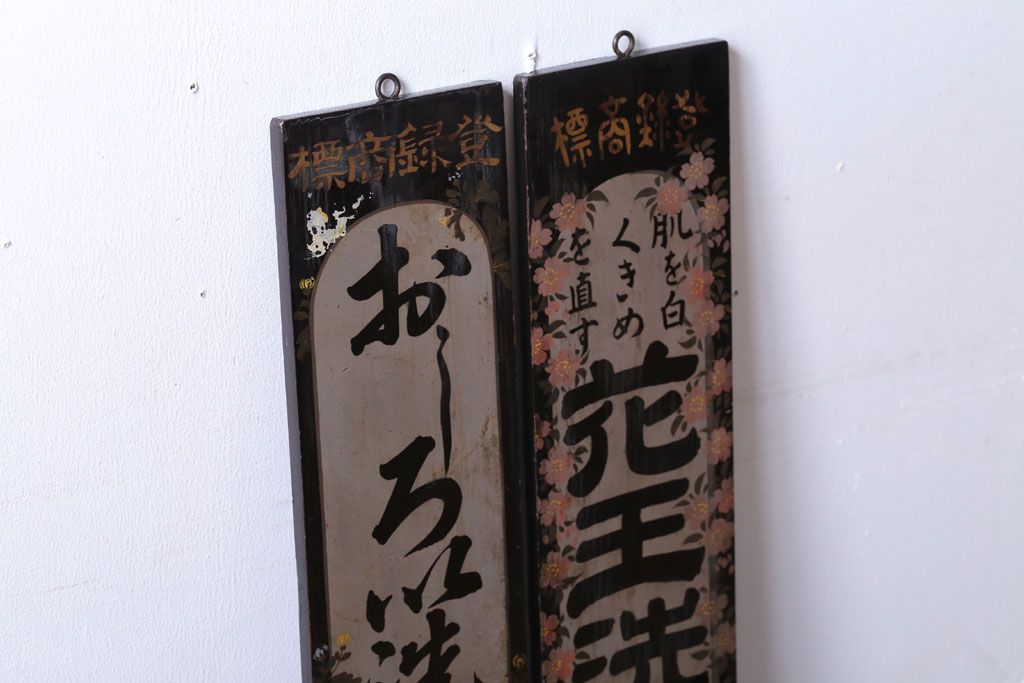 登録商標
おしろい洗
登録商標
肌を白
くきめ
を直す
花王洗